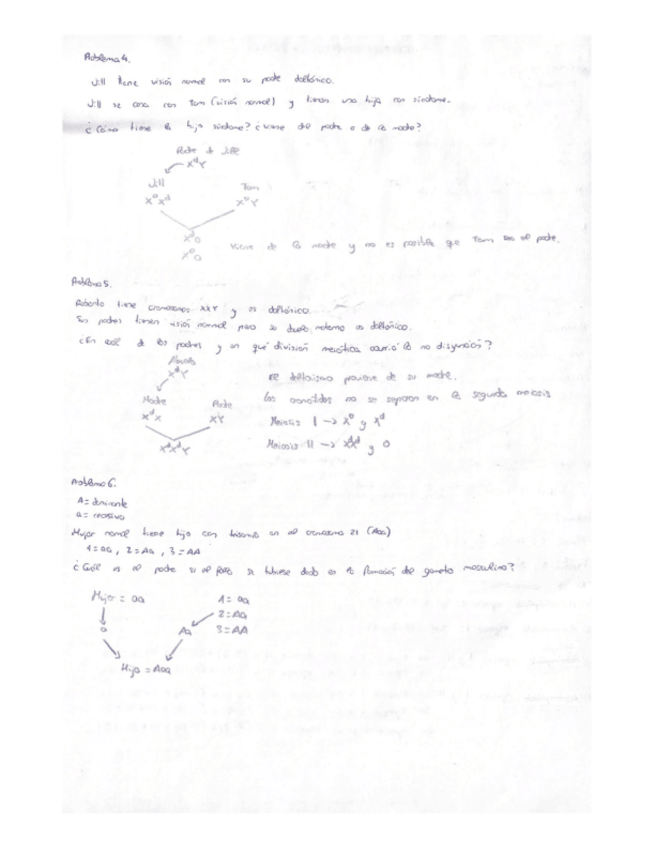 Problema 4.
Jill tiene visión normal con su padre daltónico.
Jill se casa con Tom (visión normal) y tienen una hija con síndrome.
¿Cómo tiene la hija síndrome? ¿Viene del padre o de la madre?
Padre de Jill
XᵈY
Jill Tom
XᴰXᵈ XᴰY
Xᵈ0
Xᴰ0
Viene de la madre y no es posible que Tom sea el padre.
Problema 5.
Roberto tiene cromosomas XXY y es daltónico.
Sus padres tienen visión normal pero su abuelo materno es daltónico.
¿En cuál de los padres y en qué división meiótica ocurrió la no disyunción?
Abuelo
XᵈY
Madre Padre
XᵈX XY
XᵈXᵈY
El daltonismo proviene de su madre.
Las cromátidas no se separan en la segunda meiosis
Meiosis I → Xᴰ y Xᵈ
Meiosis II → XᵈXᵈ y 0
Problema 6.
A = dominante
a = recesivo
Mujer normal tiene hijo con trisomía en el cromosoma 21 (Aaa)
1 = aa, 2 = Aa, 3 = AA
¿Cuál es el padre si el fallo se hubiese dado en la formación del gameto masculino?
Mujer = aa 1 = aa
2 = Aa
a Aa 3 = AA
Hijo = Aaa